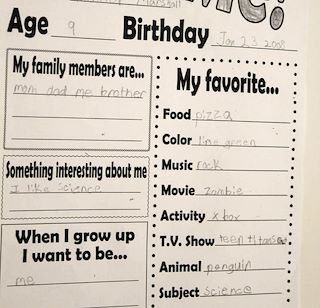 ME!
Marshall
Age 9 Birthday Jan 23 2008
My family members are...
mom dad me brother
Something interesting about me
I like science
When I grow up
I want to be...
me
My favorite...
Food pizza
Color lime green
Music rock
Movie zombie
Activity x box
T.V. Show teen titans go
Animal penguin
Subject science